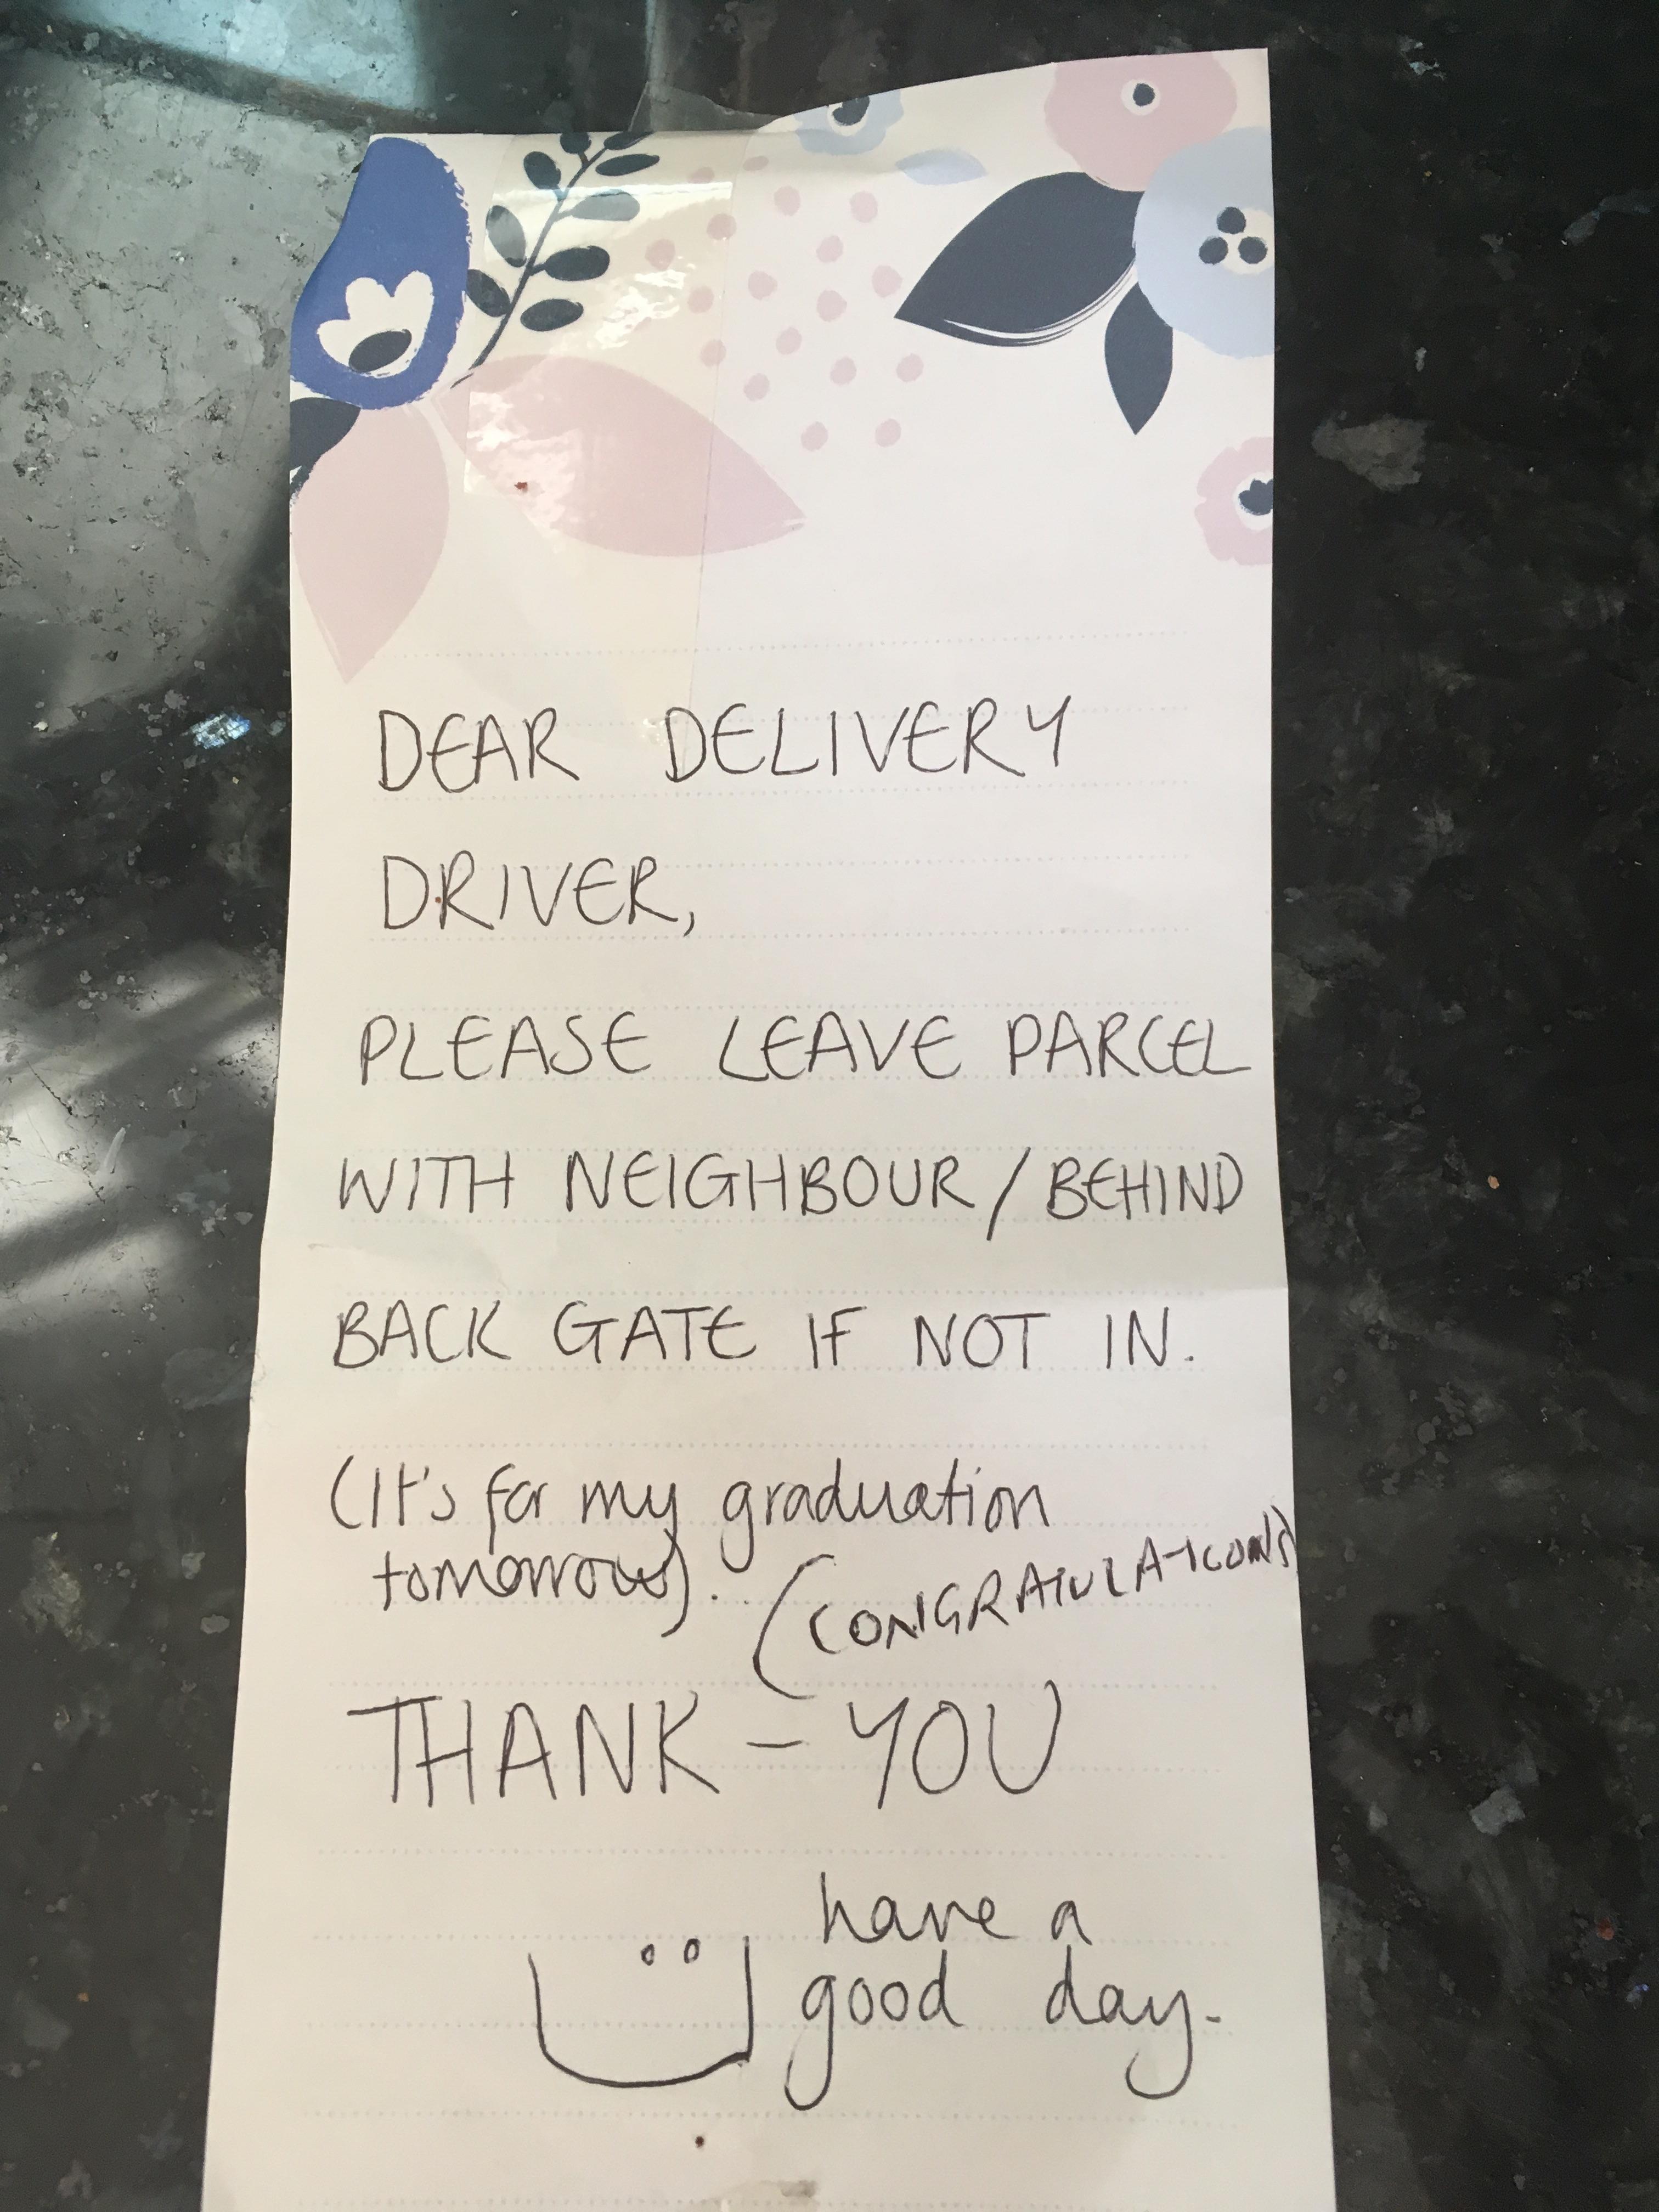 DEAR DELIVERY
DRIVER,
PLEASE LEAVE PARCEL
WITH NEIGHBOUR / BEHIND
BACK GATE IF NOT IN.
(It's for my graduation
tomorrow).
(CONGRATULATIONS)
THANK - YOU
have a
good day.